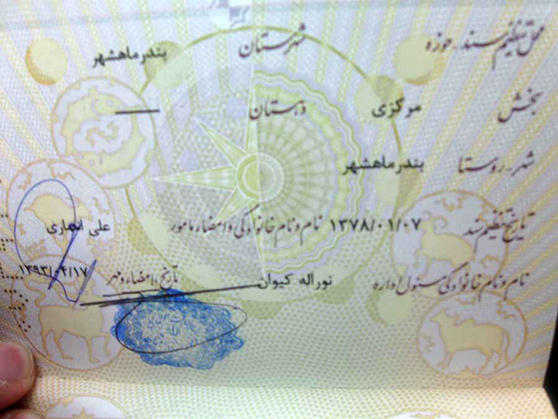 محل تنظیم سند - حوزه شهرستان بندرماهشهر
بخش مرکزی دهستان —
شهر - روستا بندرماهشهر
تاریخ تنظیم سند ۱۳۷۸/۰۱/۰۷ نام و نام خانوادگی و امضاء مامور علی انصاری
نام و نام خانوادگی مسئول اداره نوراله کیوان تاریخ، امضاء و مهر ۱۳۹۳/۰۴/۱۷